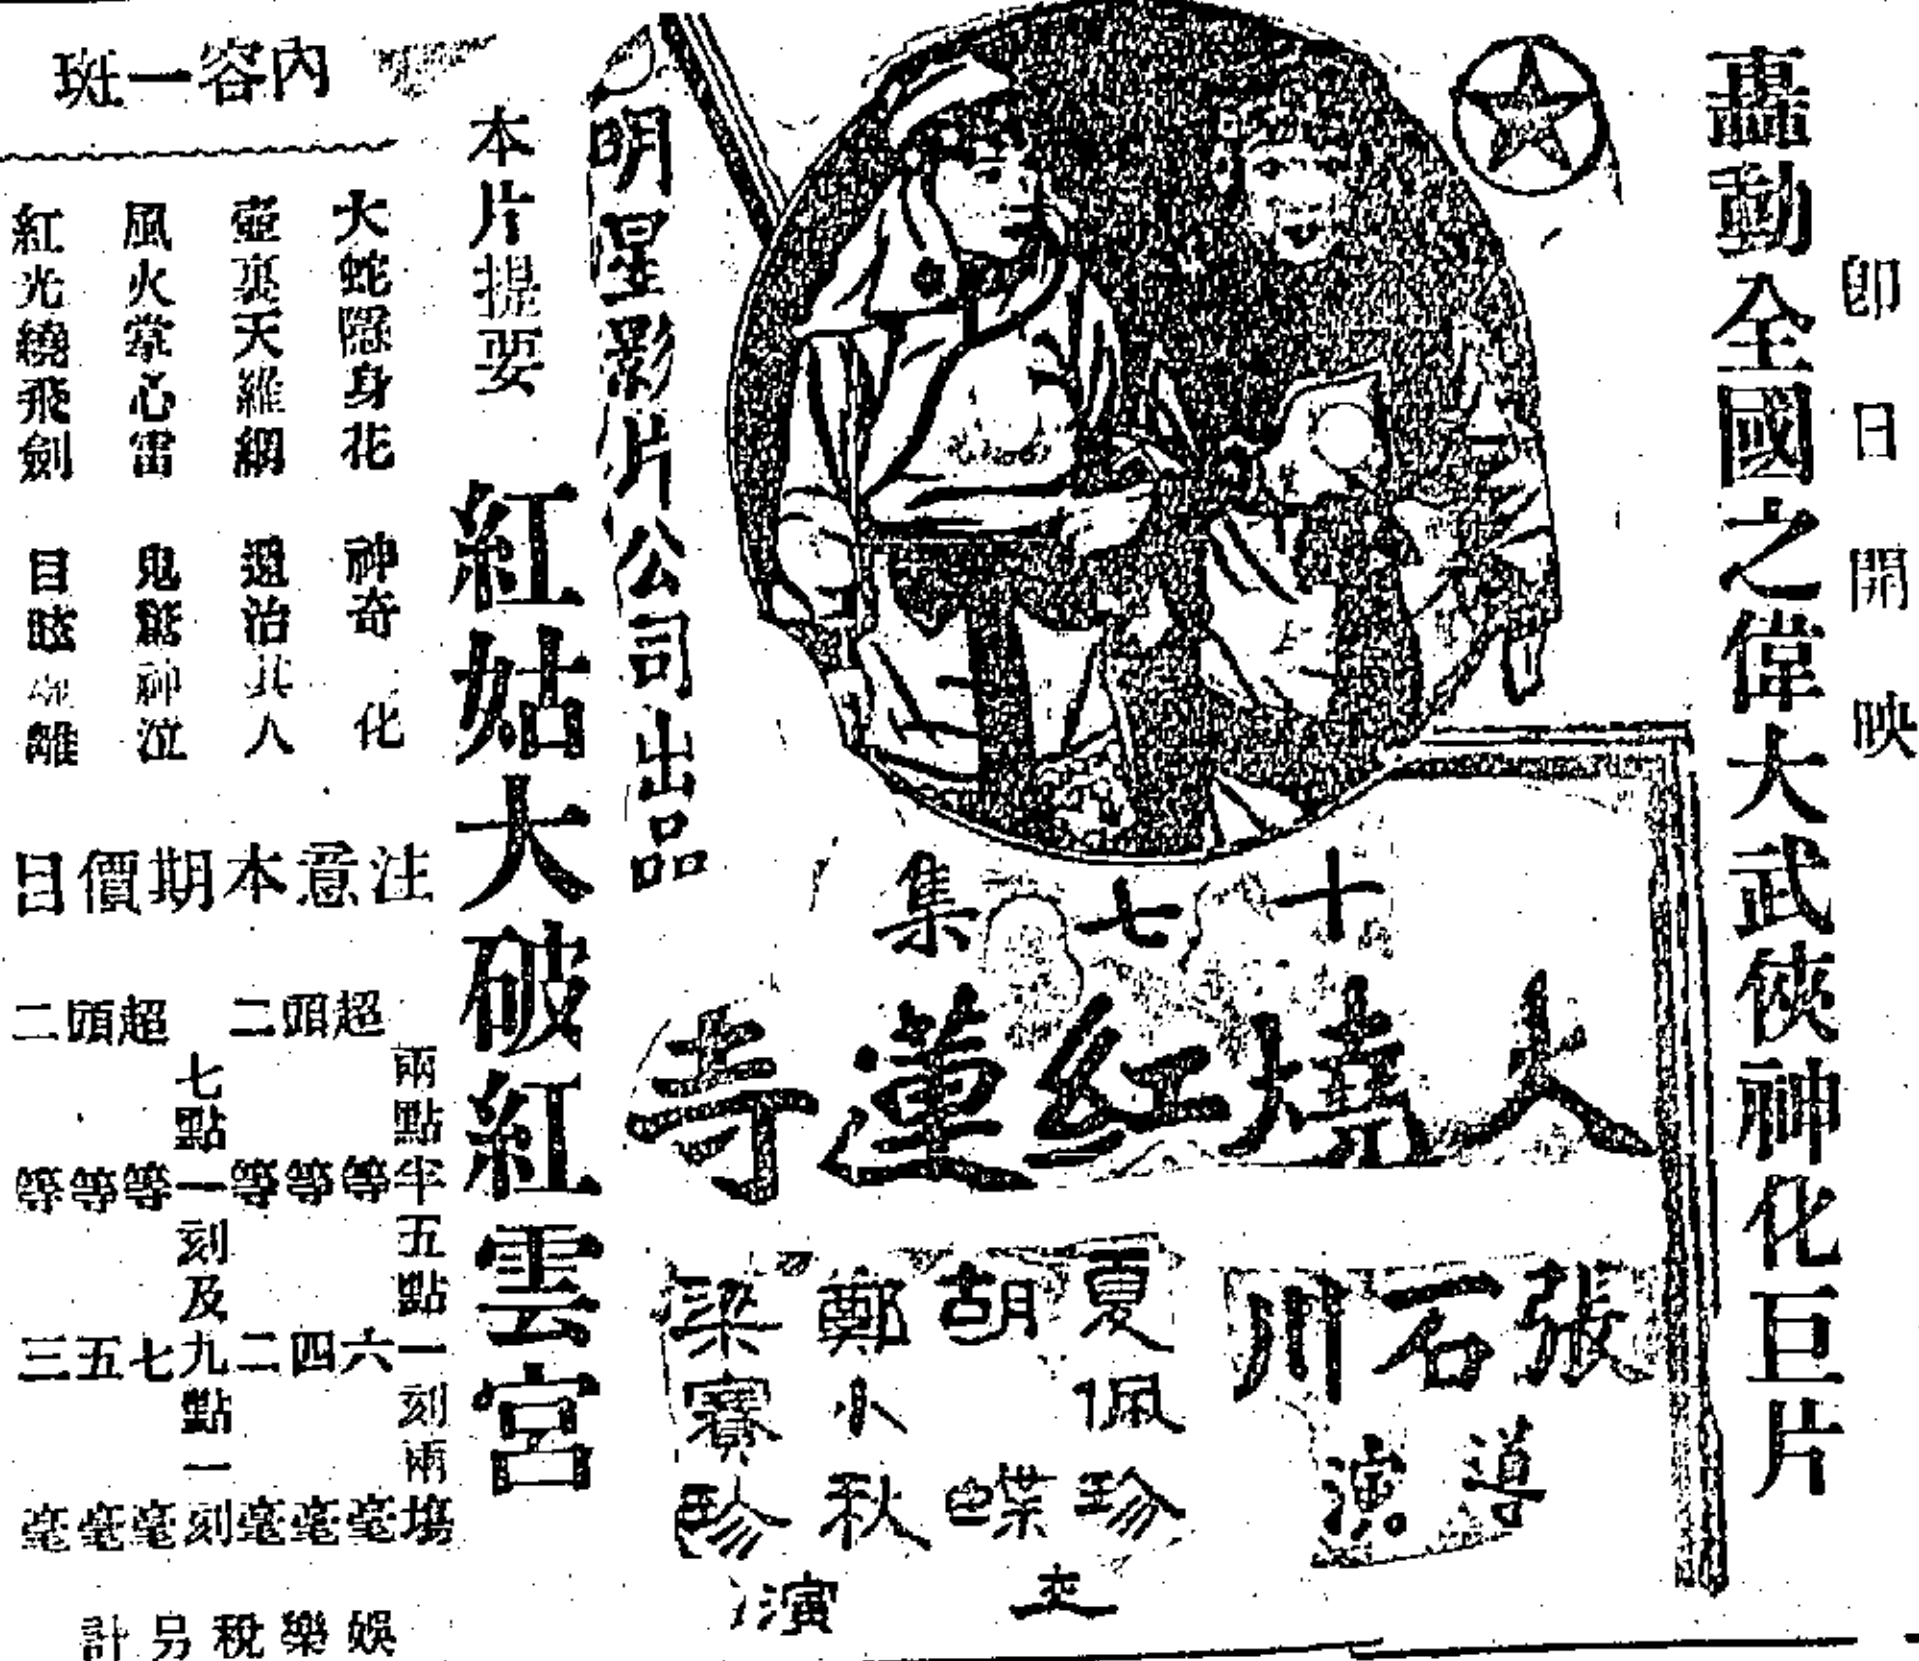 即日開映
轟動全國之偉大武俠神化巨片
十七集
火燒紅蓮寺
張石川
導演
夏佩珍
胡蝶
鄭小秋
梁賽珍
主演
明星影片公司出品
本片提要
紅姑大破紅雲宮
內容一斑
大蛇隱身花 神奇 化
壺裏天羅網 還治其人
風火掌心雷 鬼驚神泣
紅光繞飛劍 目眩 離
注意本期價目
兩點半五點一刻兩塲
超等六毫
頭等四毫
二等二毫
七點一刻及九點一刻
超等七毫
頭等五毫
二等三毫
娛樂稅另計